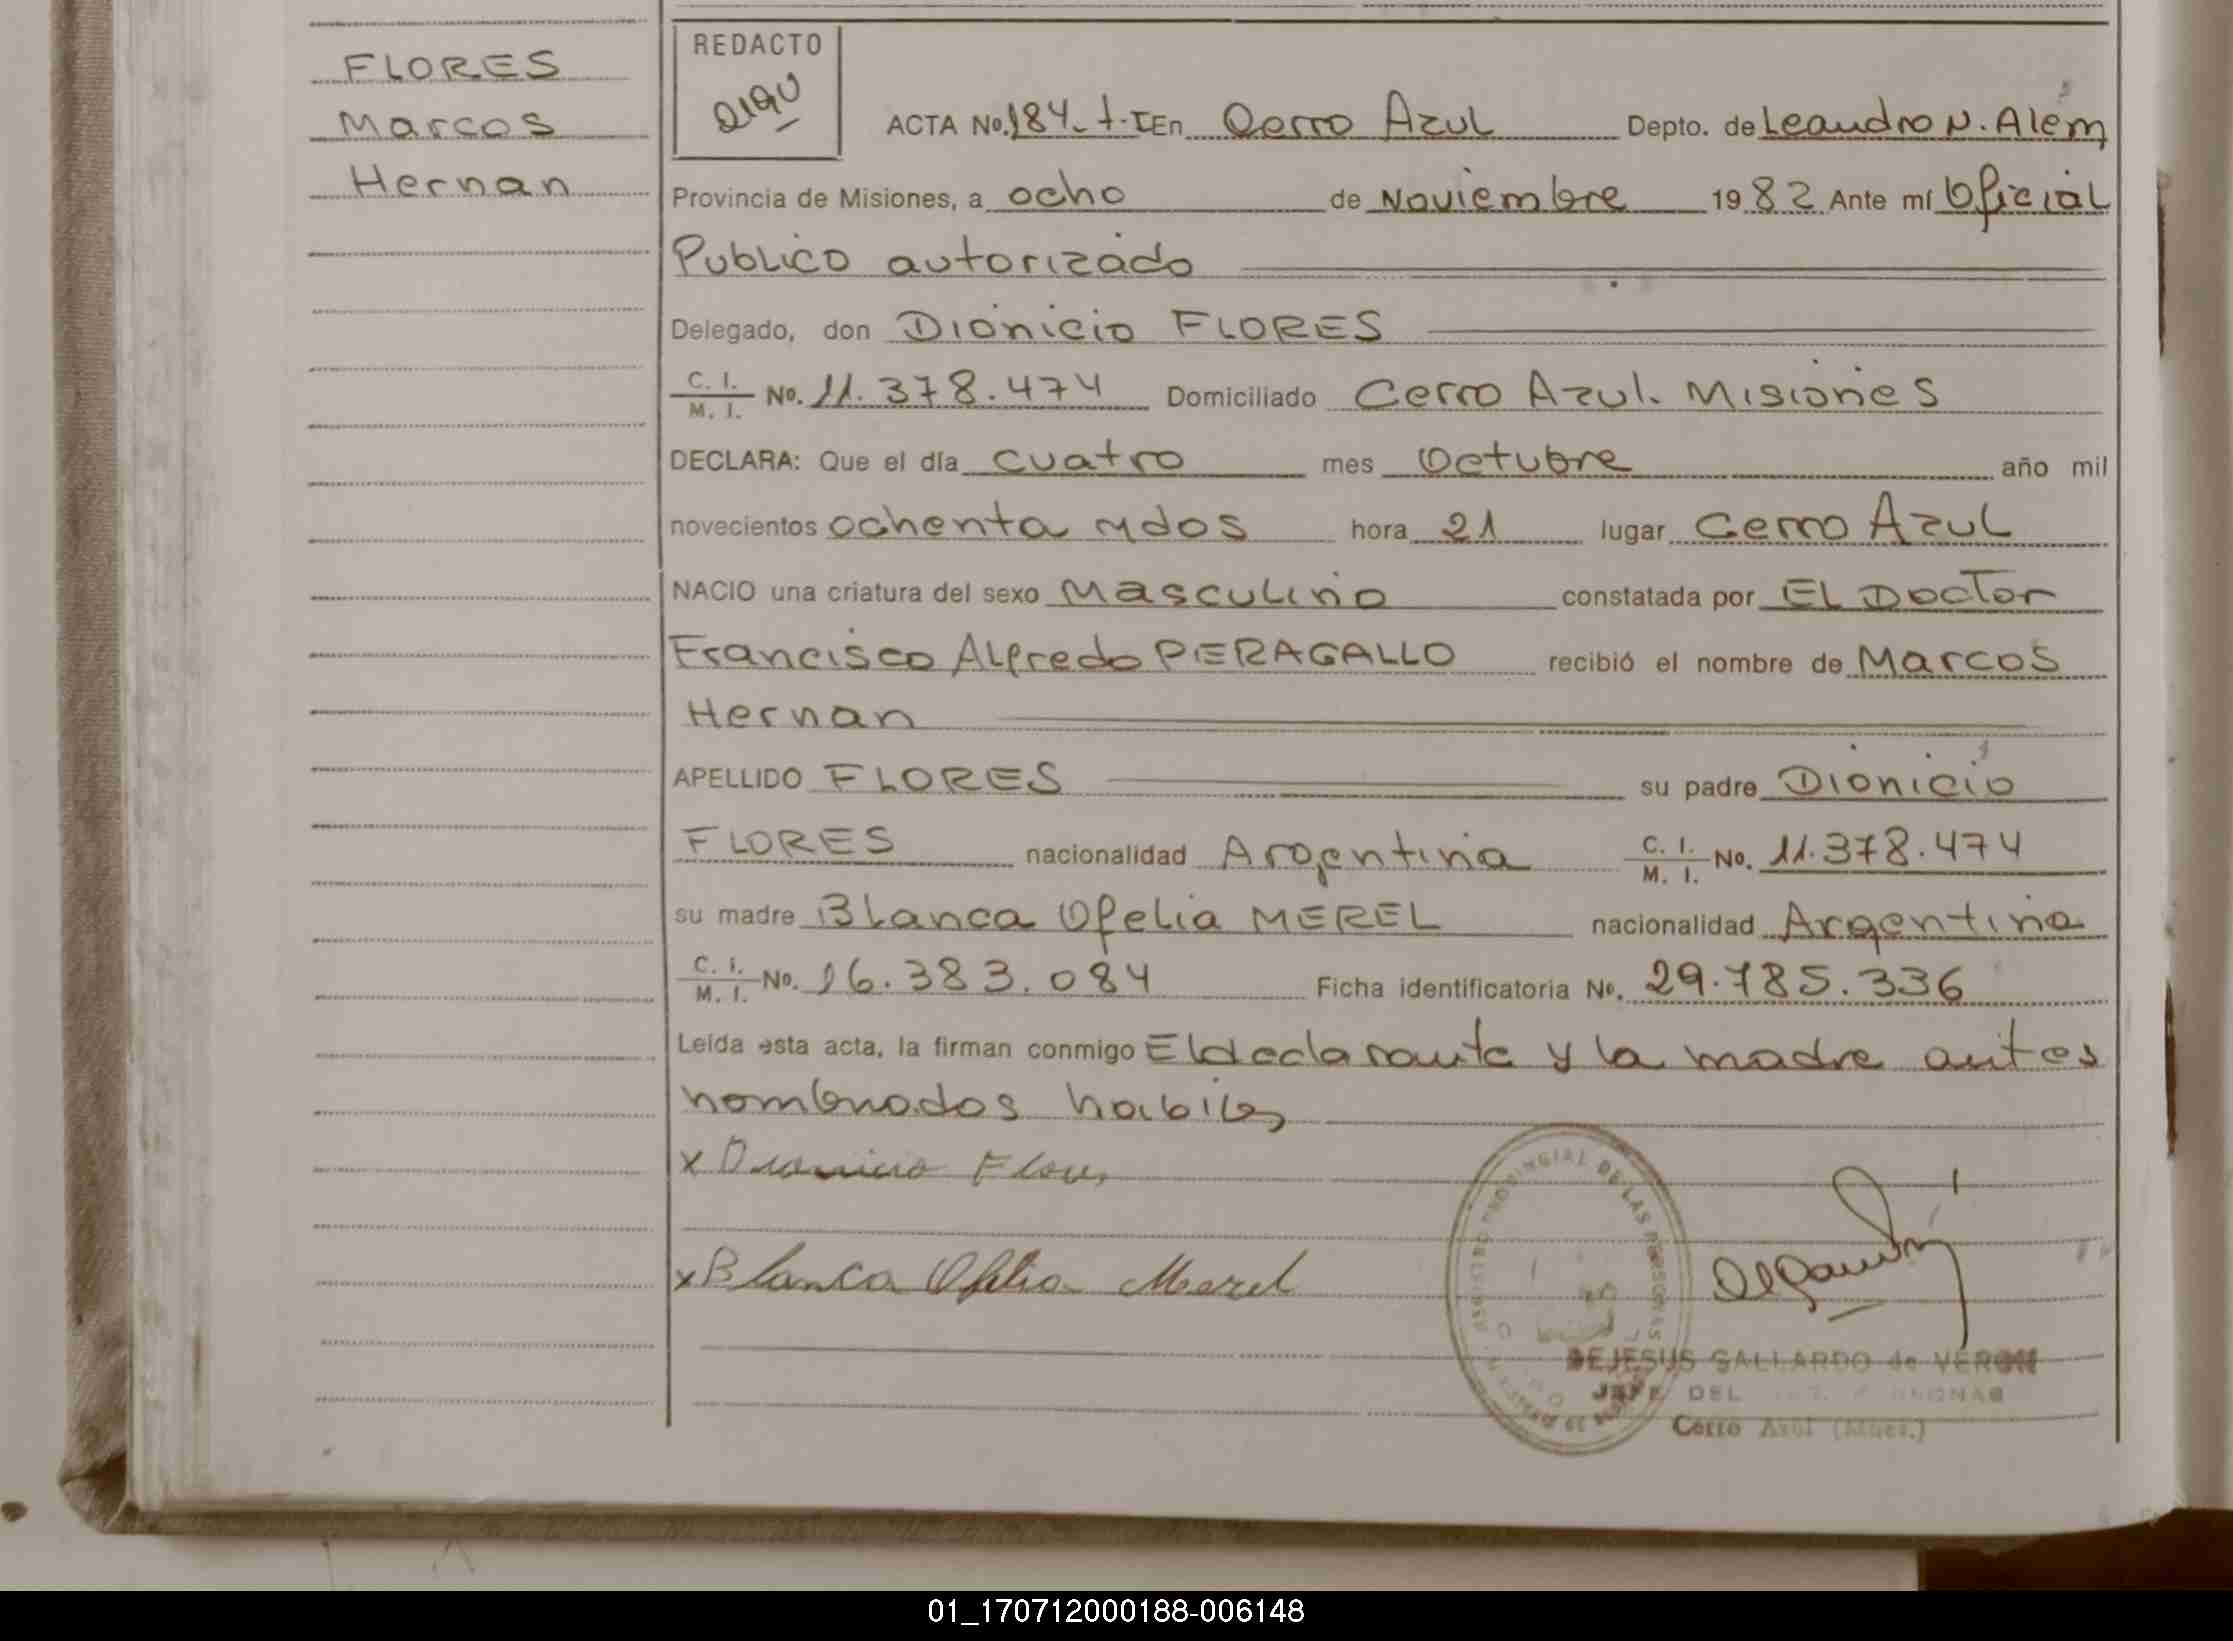 FLORES
Marcos
Hernan
REDACTO
ACTA No. 184. t. I En Cerro Azul Depto. de Leandro N. Alem
Provincia de Misiones, a ocho de Noviembre 1982 Ante mí Oficial
Publico autorizado
Delegado, don Dionicio FLORES
C. I.
M. I. No. 11.378.474 Domiciliado Cerro Azul. Misiones
DECLARA: Que el día cuatro mes Octubre año mil
novecientos ochenta y dos hora 21 lugar Cerro Azul
NACIO una criatura del sexo Masculino constatada por EL Doctor
Francisco Alfredo PERAGALLO recibió el nombre de Marcos
Hernan
APELLIDO FLORES su padre Dionicio
FLORES nacionalidad Argentina C. I. M. I. No. 11.378.474
su madre Blanca Ofelia MEREL nacionalidad Argentina
C. I. M. I. No. 16.383.084 Ficha identificatoria No. 29.785.336
Leída esta acta, la firman conmigo El declarante y la madre antes
nombrados habiles
x Dionicio Flores
x Blanca Ofelia Merel
REGISTRO PROVINCIAL DE LAS PERSONAS
DEJESUS GALLARDO de VERON
JEFE DEL
Cerro Azul (Mnes.)
01_170712000188-006148